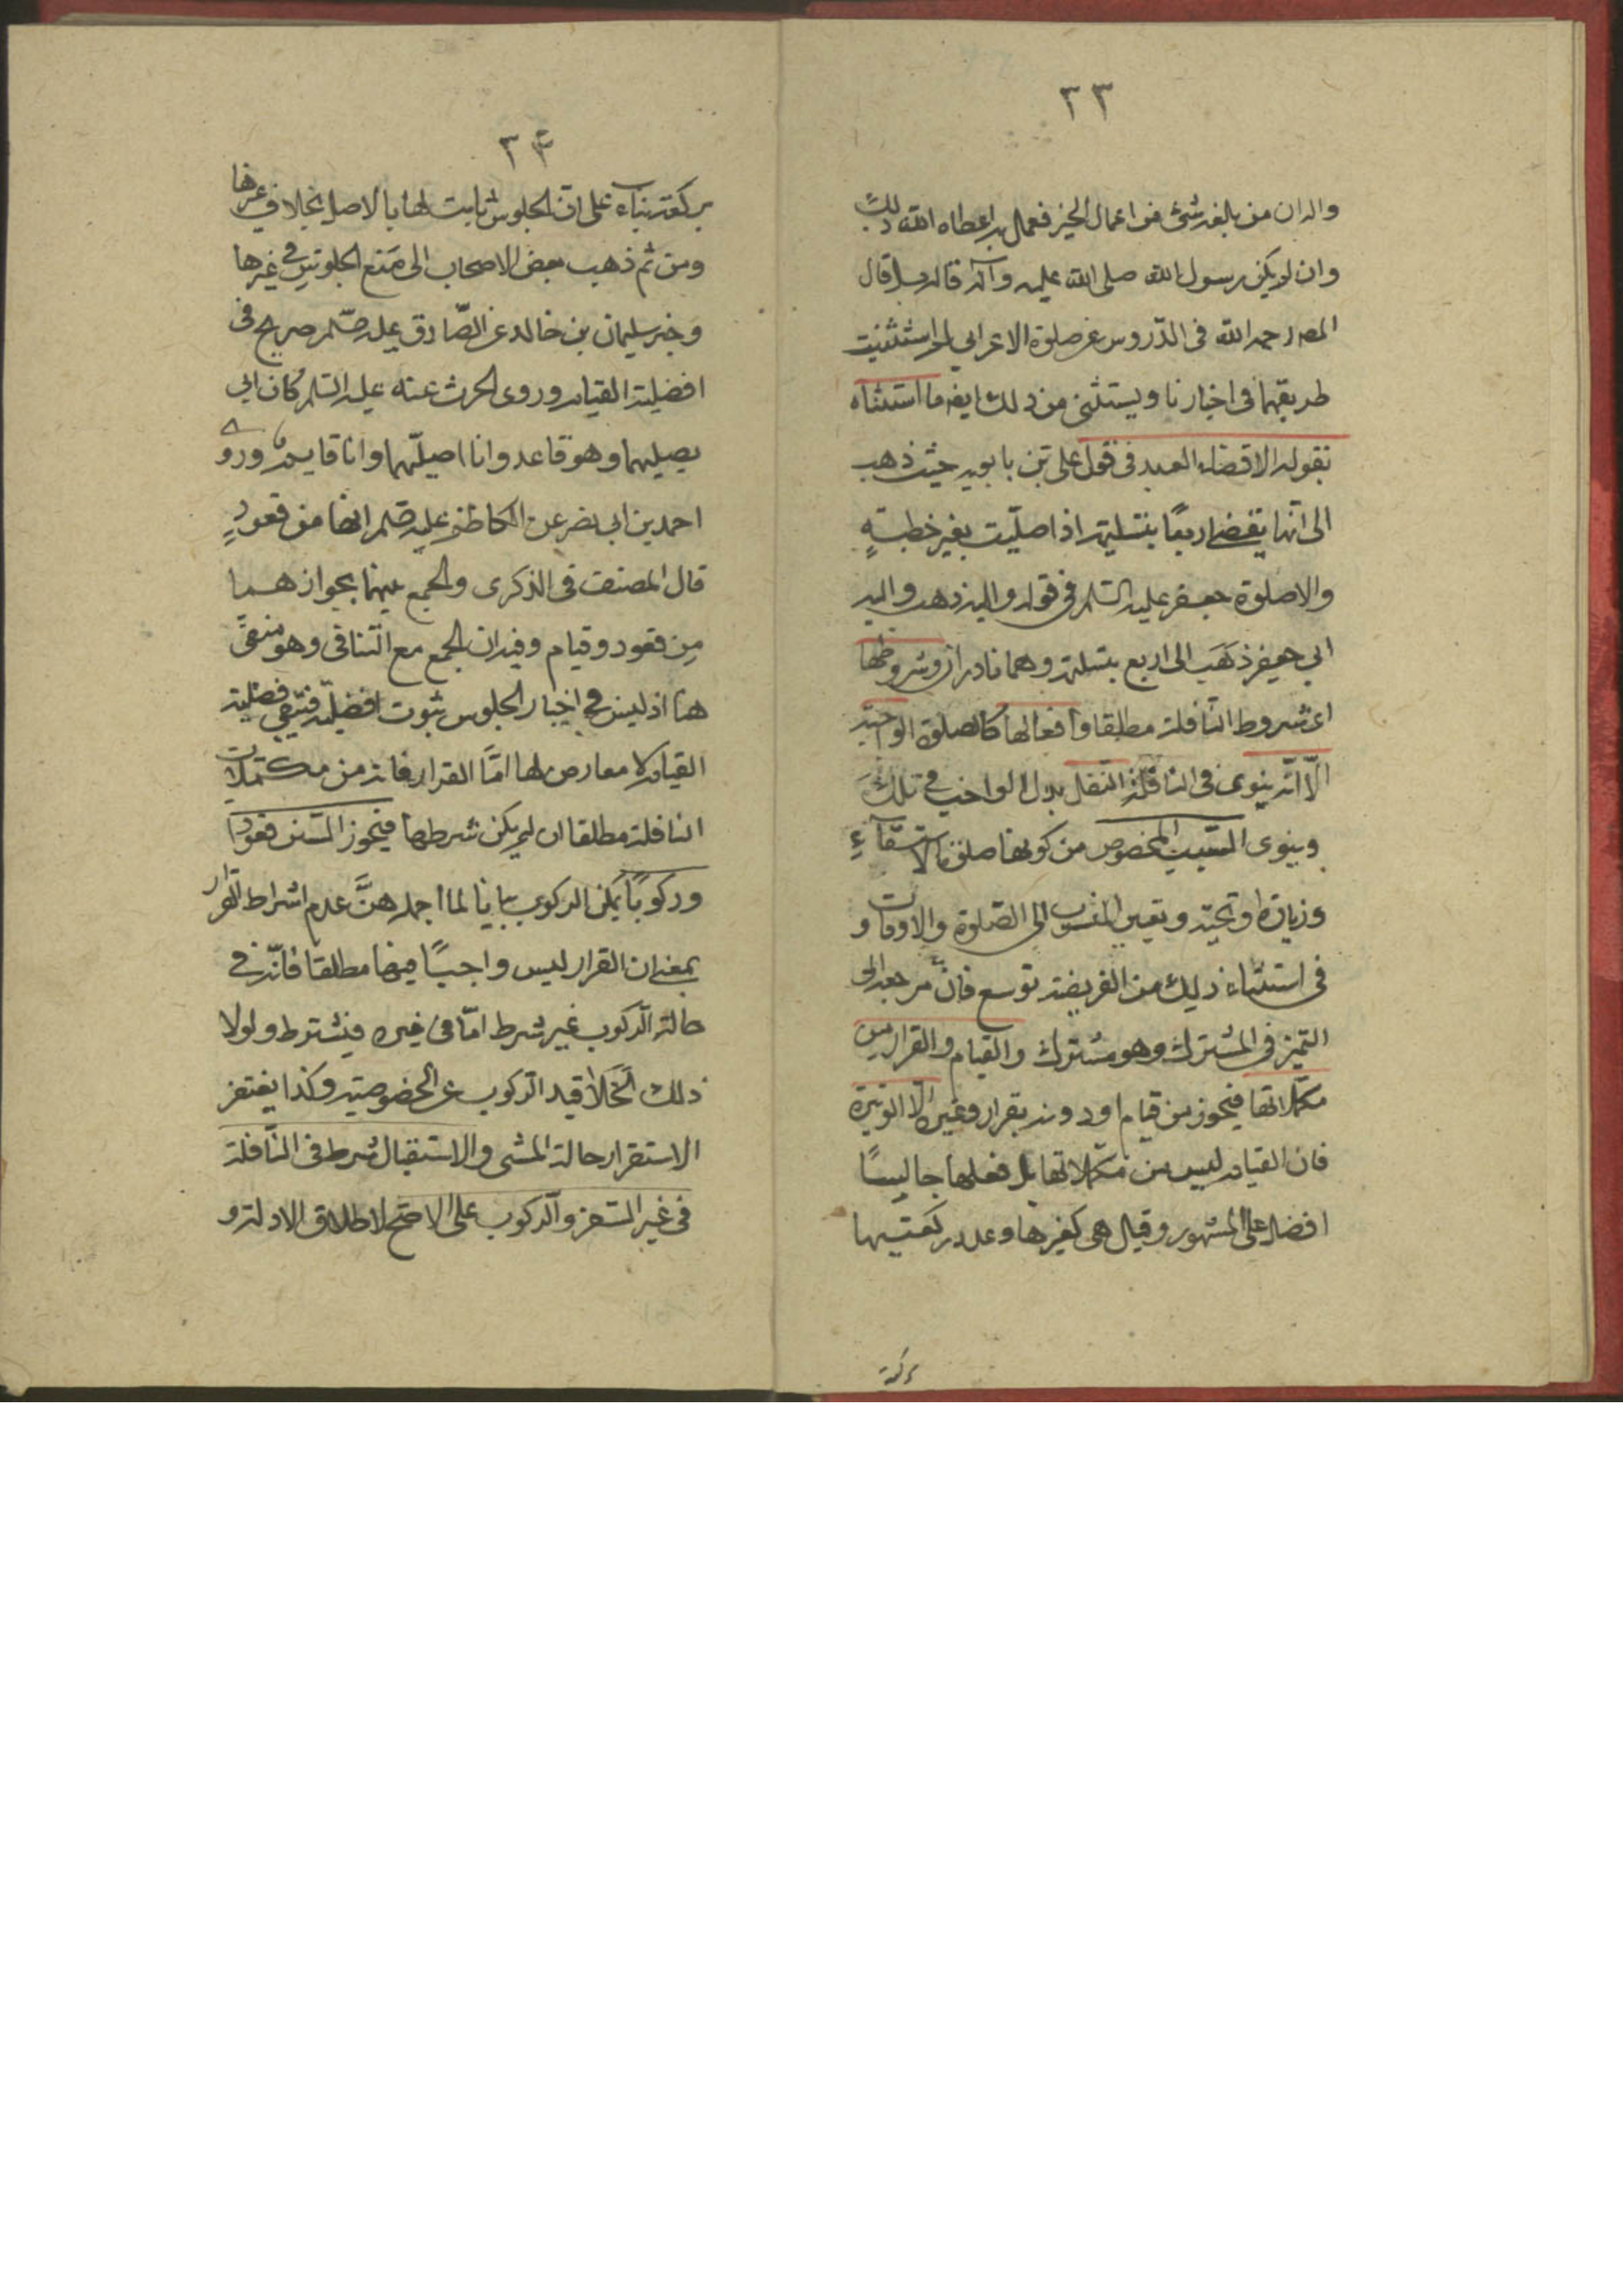 ٣٣
واله ان من بلغه شئ من اعمال الخير فعمل به اعطاه الله ذلك
وان لم يكن رسول الله صلى الله عليه وآله قاله بل قال
المصه رحمه الله فى الدروس عن صلوة الاعرابي لم استثبت
طريقها فى اخبارنا ويستثنى من ذلك ايضه ما استثناه
بقوله الا قضاء العيد فى قول على بن بابويه حيث ذهب
الى انها تقضى اربعًا بتسليمة اذا صليت بغير خطبةٍ
والا صلوة جعفر عليه السلم فى قوله واليه ذهب واليه
ابي جعفر ذهَب الى اربع بتسلمة وهما نادران وشروطها
اى شروط النافلة مطلقا وافعالها كالصلوة الواجبة
الّا انه ينوى فى النافلة النفل بدل الواجب فى تلك
وينوى السبب المخصوص من كونها صلوة الاستسقآءِ
وزيارة او تحية وتعيين المنسوب الى الصّلوة والاوقات و
فى استثناء ذلك من الفريضة توسع فانّ مرجعه الى
التميز فى المشترك وهو مشترك والقيام والقرار من
مكملاتها فيجوز من قيام ودونه بقرار وغيره الّا الوتيرة
فان القيام ليس من مكملاتها بل فعلها جالسًا
افضل على المشهور وقيل هى كغيرها وعد ركعتيها
بركعة
٣٤
بركعة بناء على ان الجلوس ثابت لها بالاصل بخلاف غيرها
ومن ثم ذهب بعض الاصحاب الى مَنع الجلوس فى غيرها
وخبر سليمان بن خالد عن الصّادق عليه صلم صريح فى
افضلية القيام وروى الحرث عنه عليه السلم كان ابي
يصليهما وهو قاعد وانا اصليّهما وانا قايم وروى
احمد بن ابي نصر عن الكاظم عليه صلم انها من قعودٍ
قال المصنف فى الذكرى والجمع بينهما بجوازهما
مِن قعود وقيام وفيه ان الجمع مع التنافى وهو منفىً
هنا اذ ليس فى اخبار الجلوس ثبوت افضلية فتبقى فضلية
القيام لا معارض لها امّا القرار فانه من مكتملات
النافلة مطلقا ان لم يكن شرطها فيجوز السنن قعودًا
وركوبًا يكن الركوب بيانا لما اجمله هنَّ عدم اشراط القرار
بمعنى ان القرار ليس واجبًا فيها مطلقا فانّه فى
حالة الركوب غير شرط امّا فى غيره فيشترط ولولا
ذلك لَخَلا قيد الركوب عن الخصوصية وكذا يغتفر
الاستقرار حالة المشى والاستقبال شرط فى النّافلة
فى غير السفر والركوب على الاصح لاطلاق الادلة و